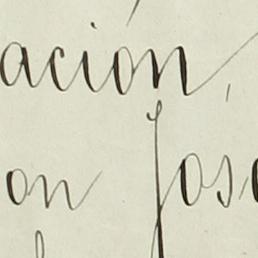 ación,
on Jos